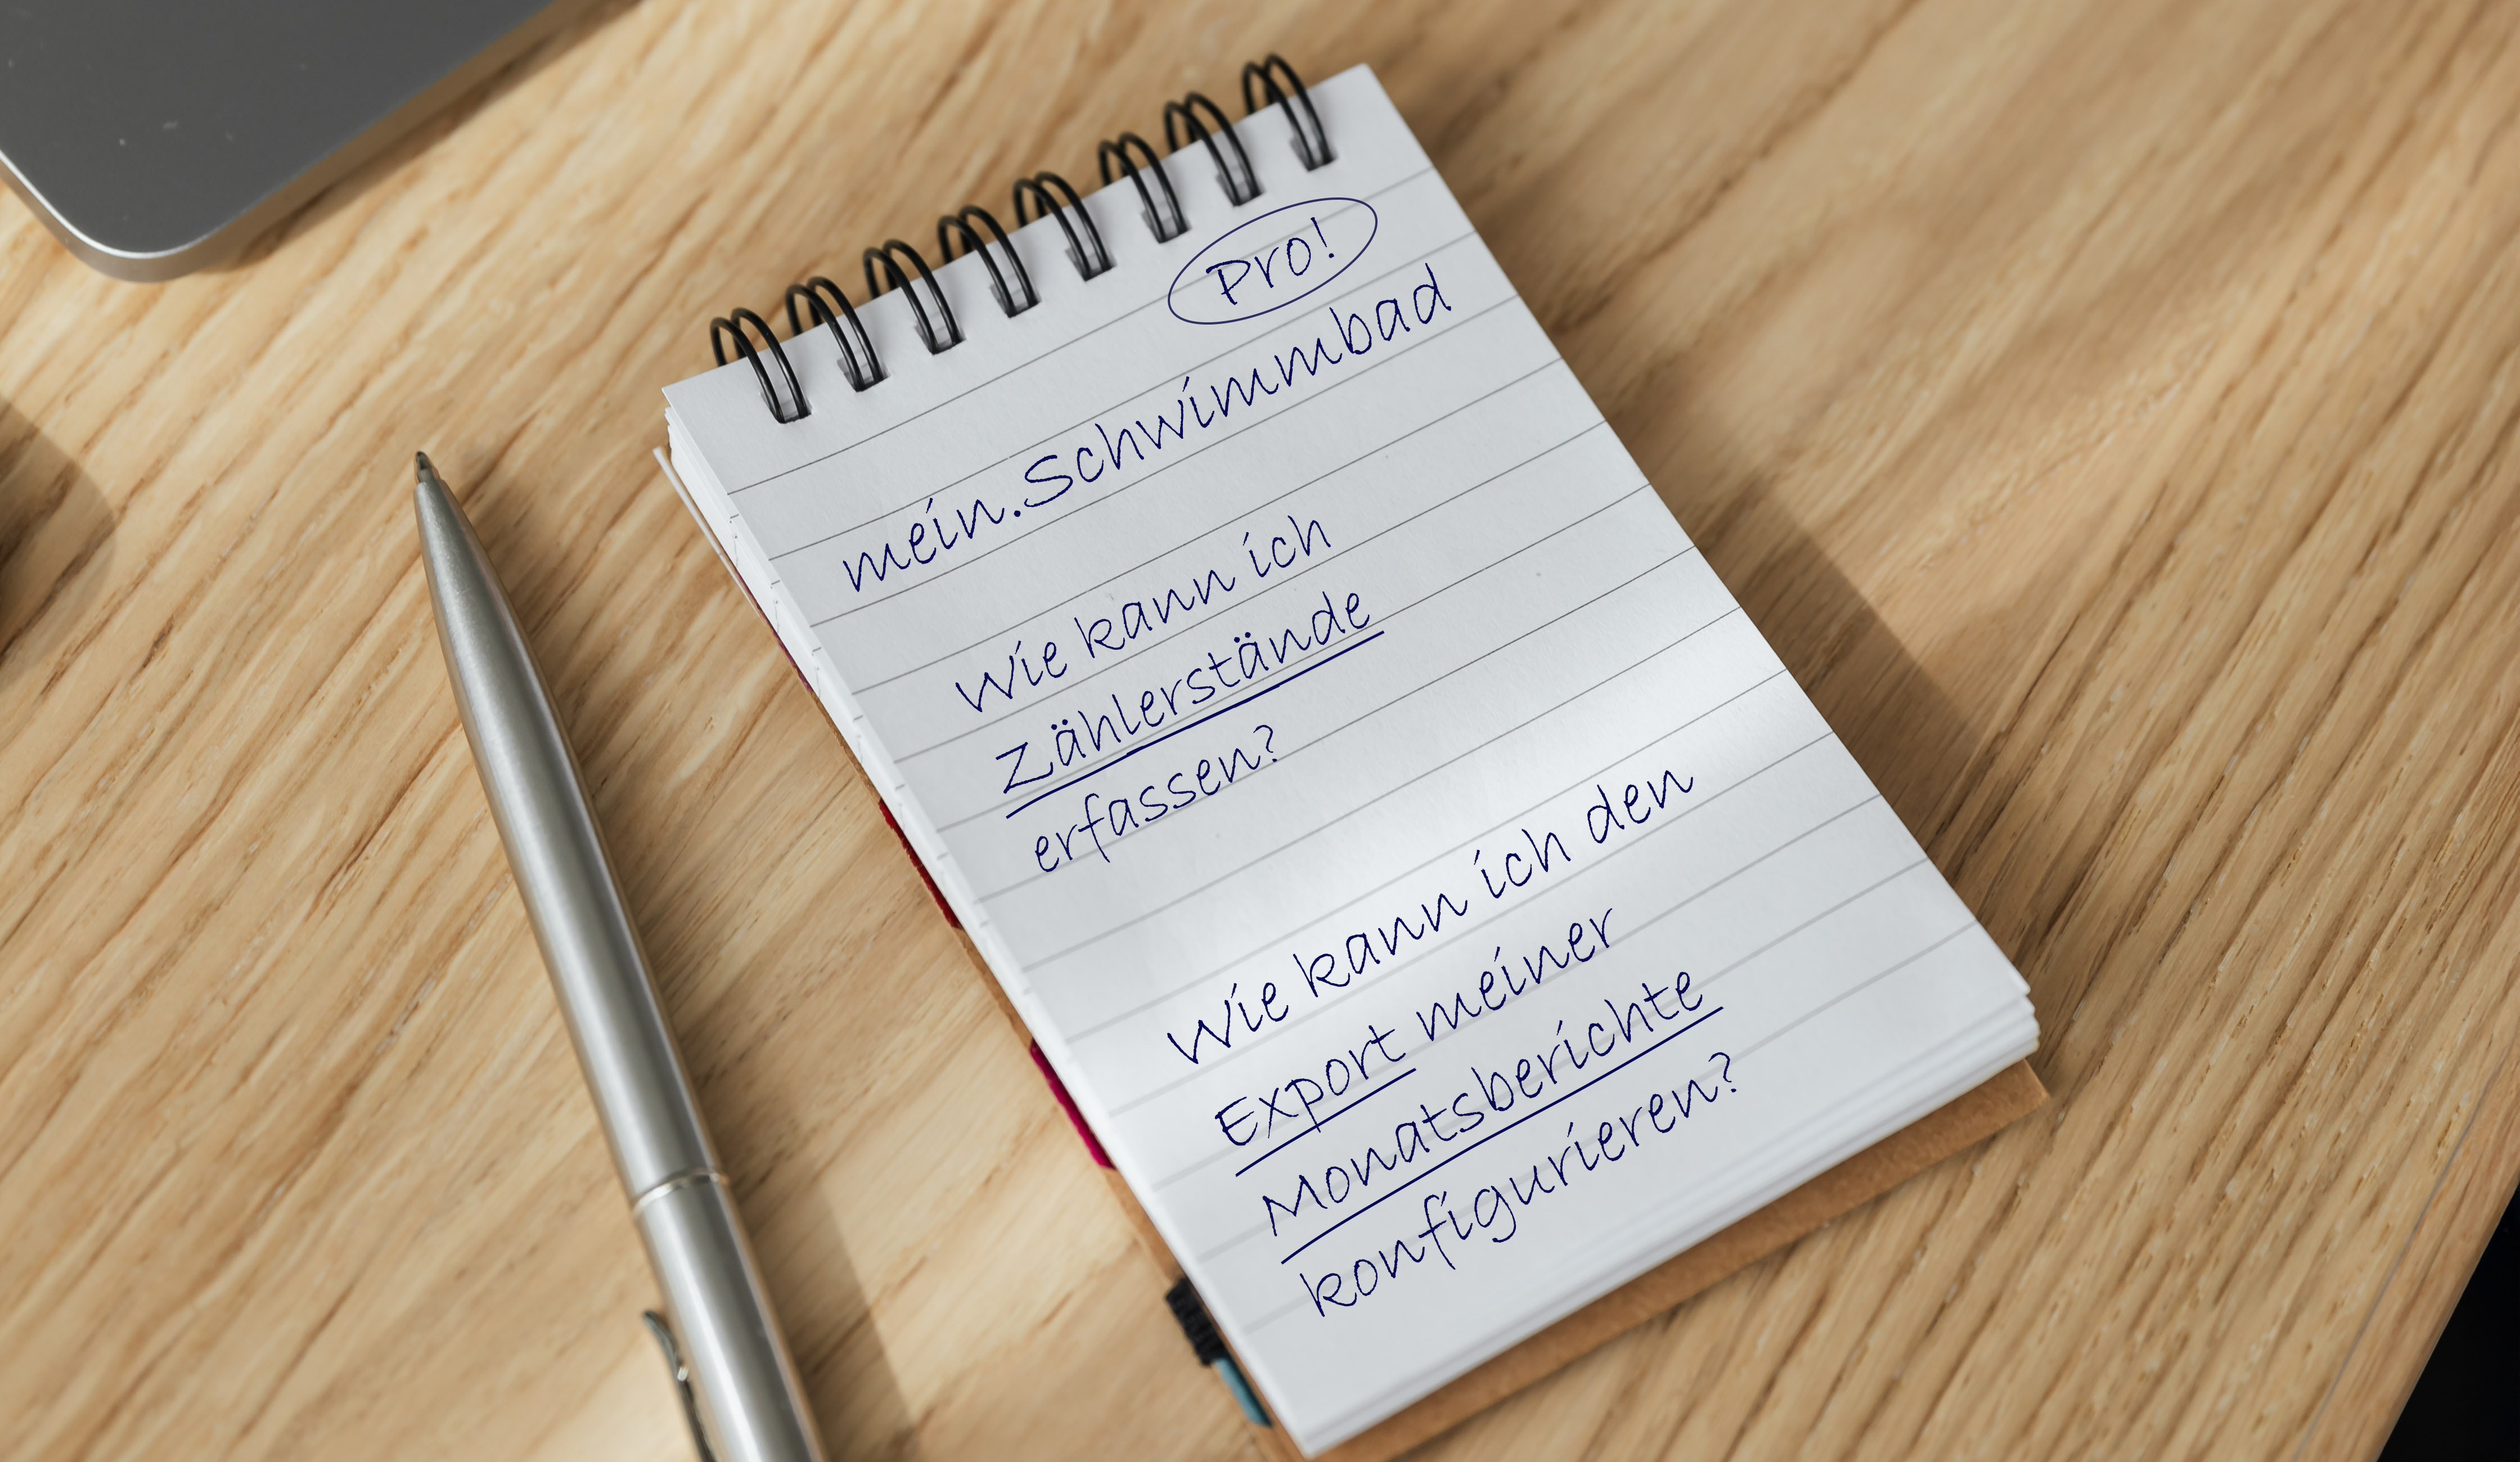 Pro!
mein.Schwimmbad
Wie kann ich
Zählerstände
erfassen?
Wie kann ich den
Export meiner
Monatsberichte
konfigurieren?